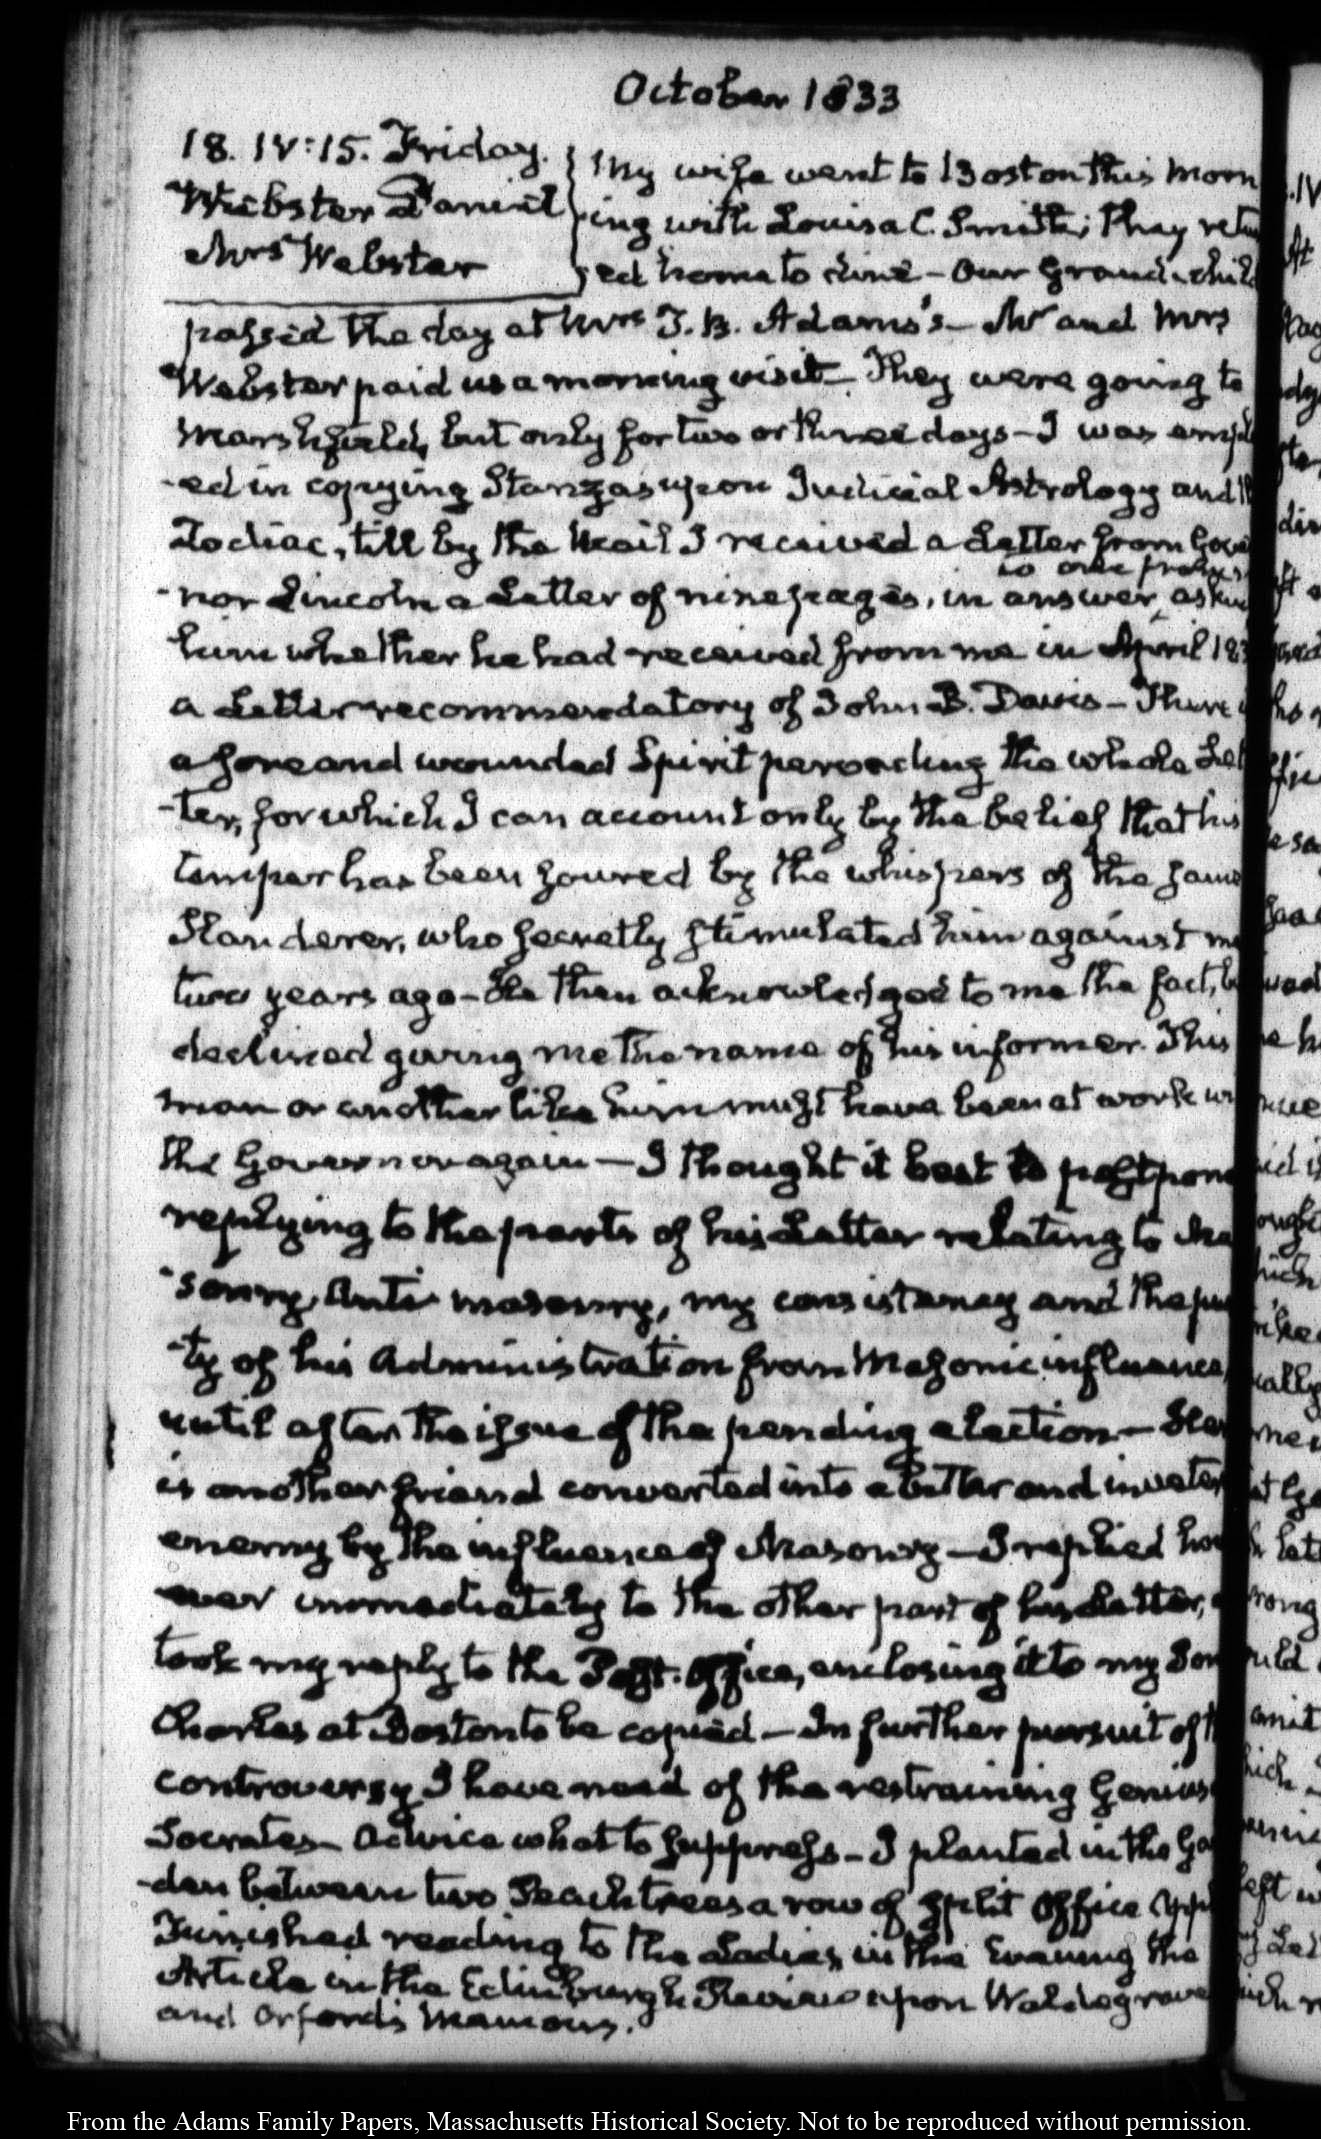 October 1833
18. IV:15. Friday.
Webster Daniel
Mrs Webster
My wife went to Boston this morn
ing with Louisa C. Smith; they retu
ed home to dine - Our Grandchild
passed the day at Mrs T. B. Adams's - Mr and Mrs
Webster paid us a morning visit - They were going to
Marshfield, but only for two or three days - I was empl
-ed in copying Stanzas upon Judicial Astrology and
Zodiac, till by the Mail I received a Letter from Gove
-nor Lincoln a Letter of nine pages, in answer to one asking
him whether he had received from me in April 183
a Letter recommendatory of John B. Davis - There
a sore and wounded Spirit pervading the whole Let
-ter, for which I can account only by the belief that his
temper has been soured by the whispers of the same
Slanderer, who secretly stimulated him against me
two years ago - He then acknowledged to me the fact, b
declined giving me the name of his informer. This
man or another like him must have been at work
the Governor again - I thought it best to postpone
replying to the parts of his Letter relating to Ma
-sonry, Anti-masonry, my consistency and the pu
-ty of his Administration from Masonic influence,
until after the issue of the pending election - Here
is another friend converted into a bitter and inveter
enemy by the influence of Masonry - I replied how
ever immediately to the other part of his Letter,
took my reply to the Post-Office, enclosing it to my Son
Charles at Boston to be copied - In further pursuit of
controversy I have need of the restraining Genius
Socrates - Advice what to suppress - I planted in the Ga
-den between two Peach trees a row of split Office Appl
Finished reading to the Ladies in the Evening the
Article in the Edinburgh Review upon Waldegrave
and Orford's Memoirs.
From the Adams Family Papers, Massachusetts Historical Society. Not to be reproduced without permission.